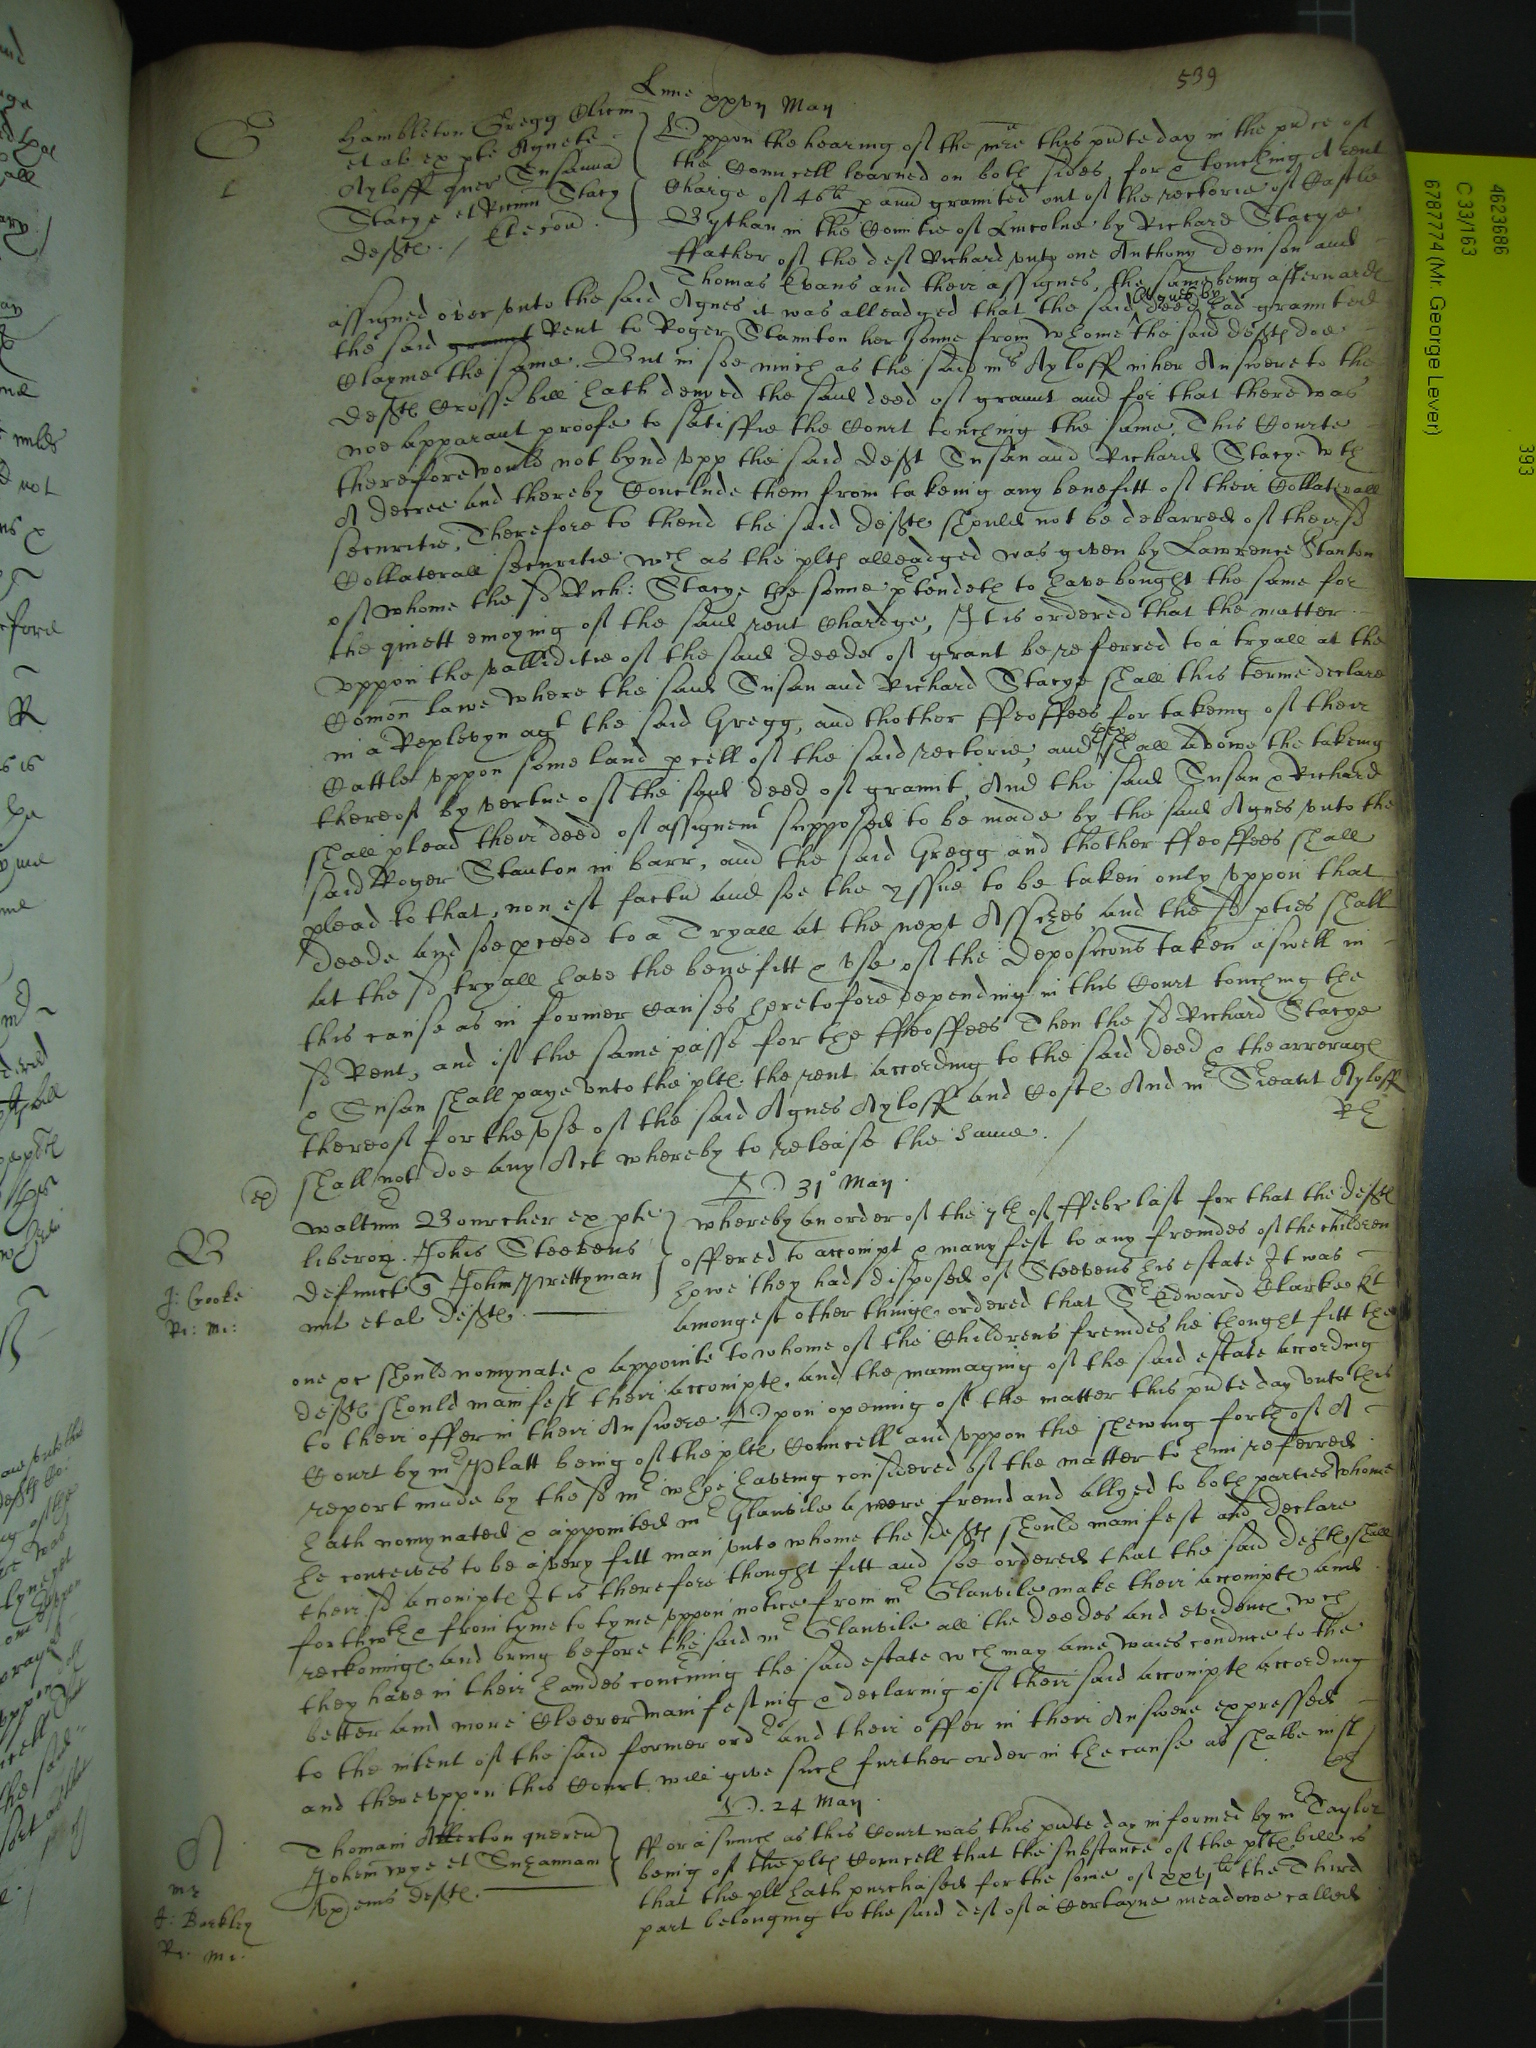 539
Lune xxvij Maij
Hambleton Gregg Cliem
et al ex pte Agnete
Ayloff quer Susanna
Stacye et Ricum Stacy
defte. /
Uppon the hearing of the mre this pnte day in the pnce of
the Councell learned on both sides, for & touching A rent
Charge of 46li p annu graunted out of the rectorie of Castle
Bytham in the Countie of Lincolne by Richard Stacye
ffather of the deft Richard unto one Anthony Denison and
Thomas Evans and their assignes, the same being afterwarde
assigned over unto the said Agnes it was alleadged that the said Agnes by deed had graunted
the said graunt Rent to Roger Staunton her sonne from whome the said defte doe
Clayme the same. But in soe much as the said mrs Ayloff in her Answere to the
defte Crosse bill hath denyed the said deed of graunt and for that there was
noe apparant proofe to satisfie the Court touching the same, This Courte
therefore would not bynd upp the said deft Susan and Richard Stacye wth
A decree and thereby Conclude them from takeing any benefitt of their Collaterall
securitie, Therefore to thend the said defte should not be debarred of their sd
Collaterall securitie wch as the plte alleadged was given by Lawrence Stanton
of whome the sd Rich: Stacye the sonne ptendeth to have bought the same for
the quiett enioying of the said rent Chardge, It is ordered that the matter
uppon the valliditie of the said deede of grant be referred to a tryall at the
Comon lawe where the said Susan and Richard Stacye shall this terme declare
in a Replevyn agt the said Gregg, and thother ffeoffees for takeing of their
Cattle uppon some land pcell of the said rectorie, and they shall avowe the takeing
thereof by vertue of the said deed of graunt, And the said Susan & Richard
shall plead their deed of assignemt supposed to be made by the said Agnes unto the
said Roger Stanton in barr, and the said Gregg and thother ffeoffees shall
plead to that, non est factu and soe the yssue to be taken only uppon that
deede and soe pceed to a Tryall at the next Assizes, and the sd pties shall
at the sd tryall have the benefitt & use of the Deposicons taken aswell in
this cause as in former Causes heretofore depending in this Court touching the
sd Rent, and if the same passe for the ffeoffees Then the sd Richard Stacye
& Susan shall paye unto the plte the rent according to the said deed & the arrerage
thereof for the use of the said Agnes Ayloff and Coste And mr Sieant Ayloff
shall not doe any Act whereby to release the same. /
31o Maij
B
J: Crooke
Ri: Mi:
Waltrum Bourcher ex pte
liberoy. Johis Steevens
defunct Johm Prettyman
mil et al defte.
Whereby an order of the 7th of ffebr last for that the defte
offered to accompt & manyfest to any freindes of the children
howe they had disposed of Steevens his estate It was
amongest other thinge ordered that Sr Edward Clarke kt
one &c should nomynate & appointe to whome of the Childrens freindes he thought fitt the
defte should manifest their accompte, and the mannaging of the said estate according
to their offer in their Answere Upon opening of the matter this pnte day unto this
Court by mr Platt being of the plte Councell and uppon the shewing forth of A
report made by the sd mr whoe haveing considered of the matter to him referred
hath nomynated & appointed mr Glanvile a neere freind and allyed to both parties whome
he conceives to be a very fitt man unto whome the defte should manifest and declare
their sd accompte It is therefore thought fitt and soe ordered that the said defte shall
forthwth & from tyme to tyme uppon notice from mr Glanvile make their accompte and
reckoninge and bring before the said mr Glanvile all the deedes and evidence wch
they have in their handes concning the said estate wch may anie waies conduce to the
better and more Cleerer manifesting & declaring of their said accompte according
to the intent of the said former ordr and their offer in their Answere expressed
and thereuppon this Court will give such further order in the cause as shalbe iust
24 Maij
A
J: Barkley
Ri. Mi.
Thomam Atterton queren
Johem Wye et Suzannam
Uxem eius defte.
fforasmuch as this Court was this pnte day informed by mr Taylor
being of the plte Councell that the substance of the plte bill is
that the plt hath purchased for the some of xxvjli the Third
part belonging to the said deft of a Certayne meadowe called
4623686
C 33/163
6787774 (Mr. George Lever)
393